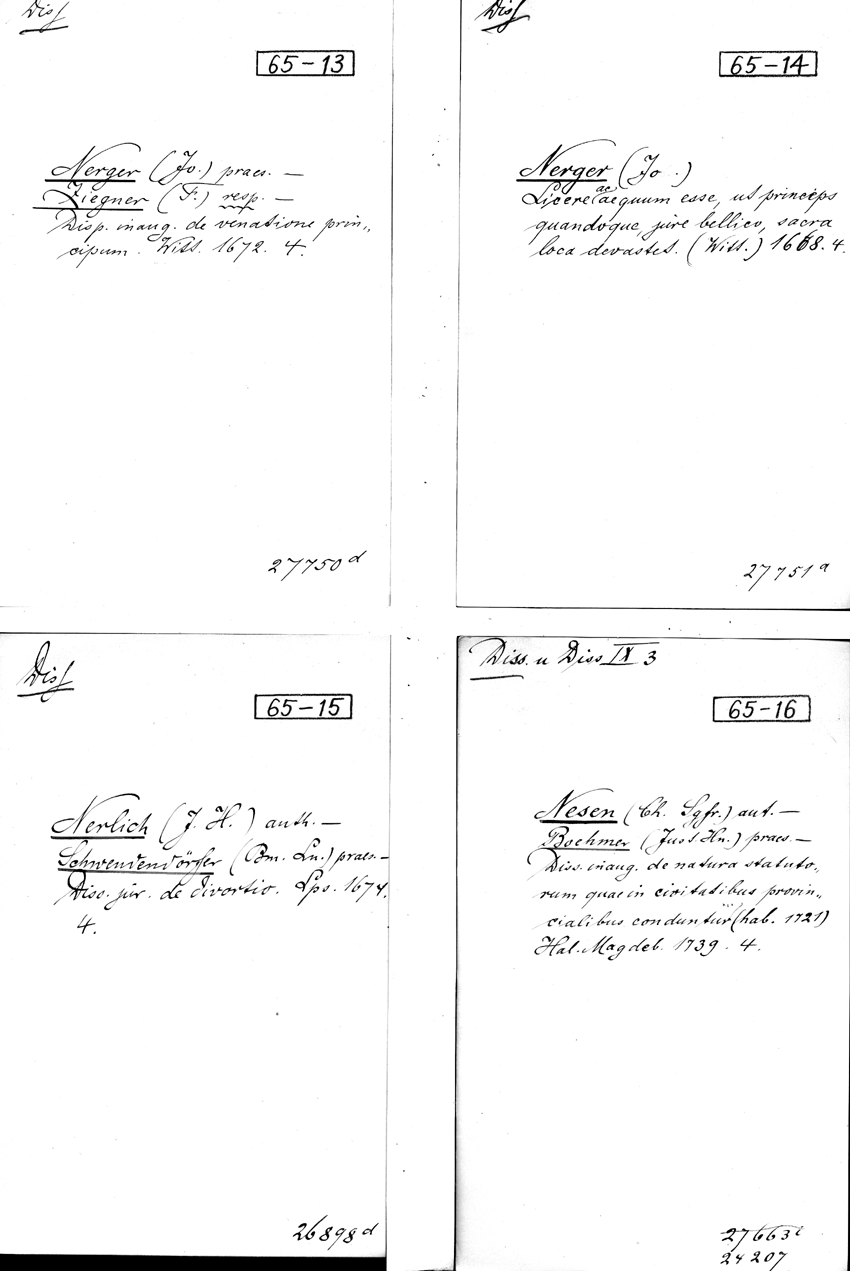 Diss
65-13
Nerger (Jo.) praes. —
Ziegner (F.) resp. —
Disp. inaug. de venatione prin„
cipum. Witt. 1672. 4.
27750 d
Diss
65-14
Nerger (Jo.)
Licere ac aequum esse, ut princeps
quandoque, jure bellico, sacra
loca devastet. (Witt.) 1668. 4.
27751 a
Diss
65-15
Nerlich (J. H.) auth. —
Schwendendörffer (Bm. Ln.) praes. —
Diss. jur. de divortio. Lps. 1674.
4.
26898 d
Diss. u Diss IX 3
65-16
Nesen (Ch. Sgfr.) aut. —
Boehmer (Just. Hn.) praes. —
Diss. inaug. de natura statuto„
rum quae in civitatibus provin„
cialibus conduntur (hab. 1721)
Hal. Magdeb. 1739. 4.
27663
24207